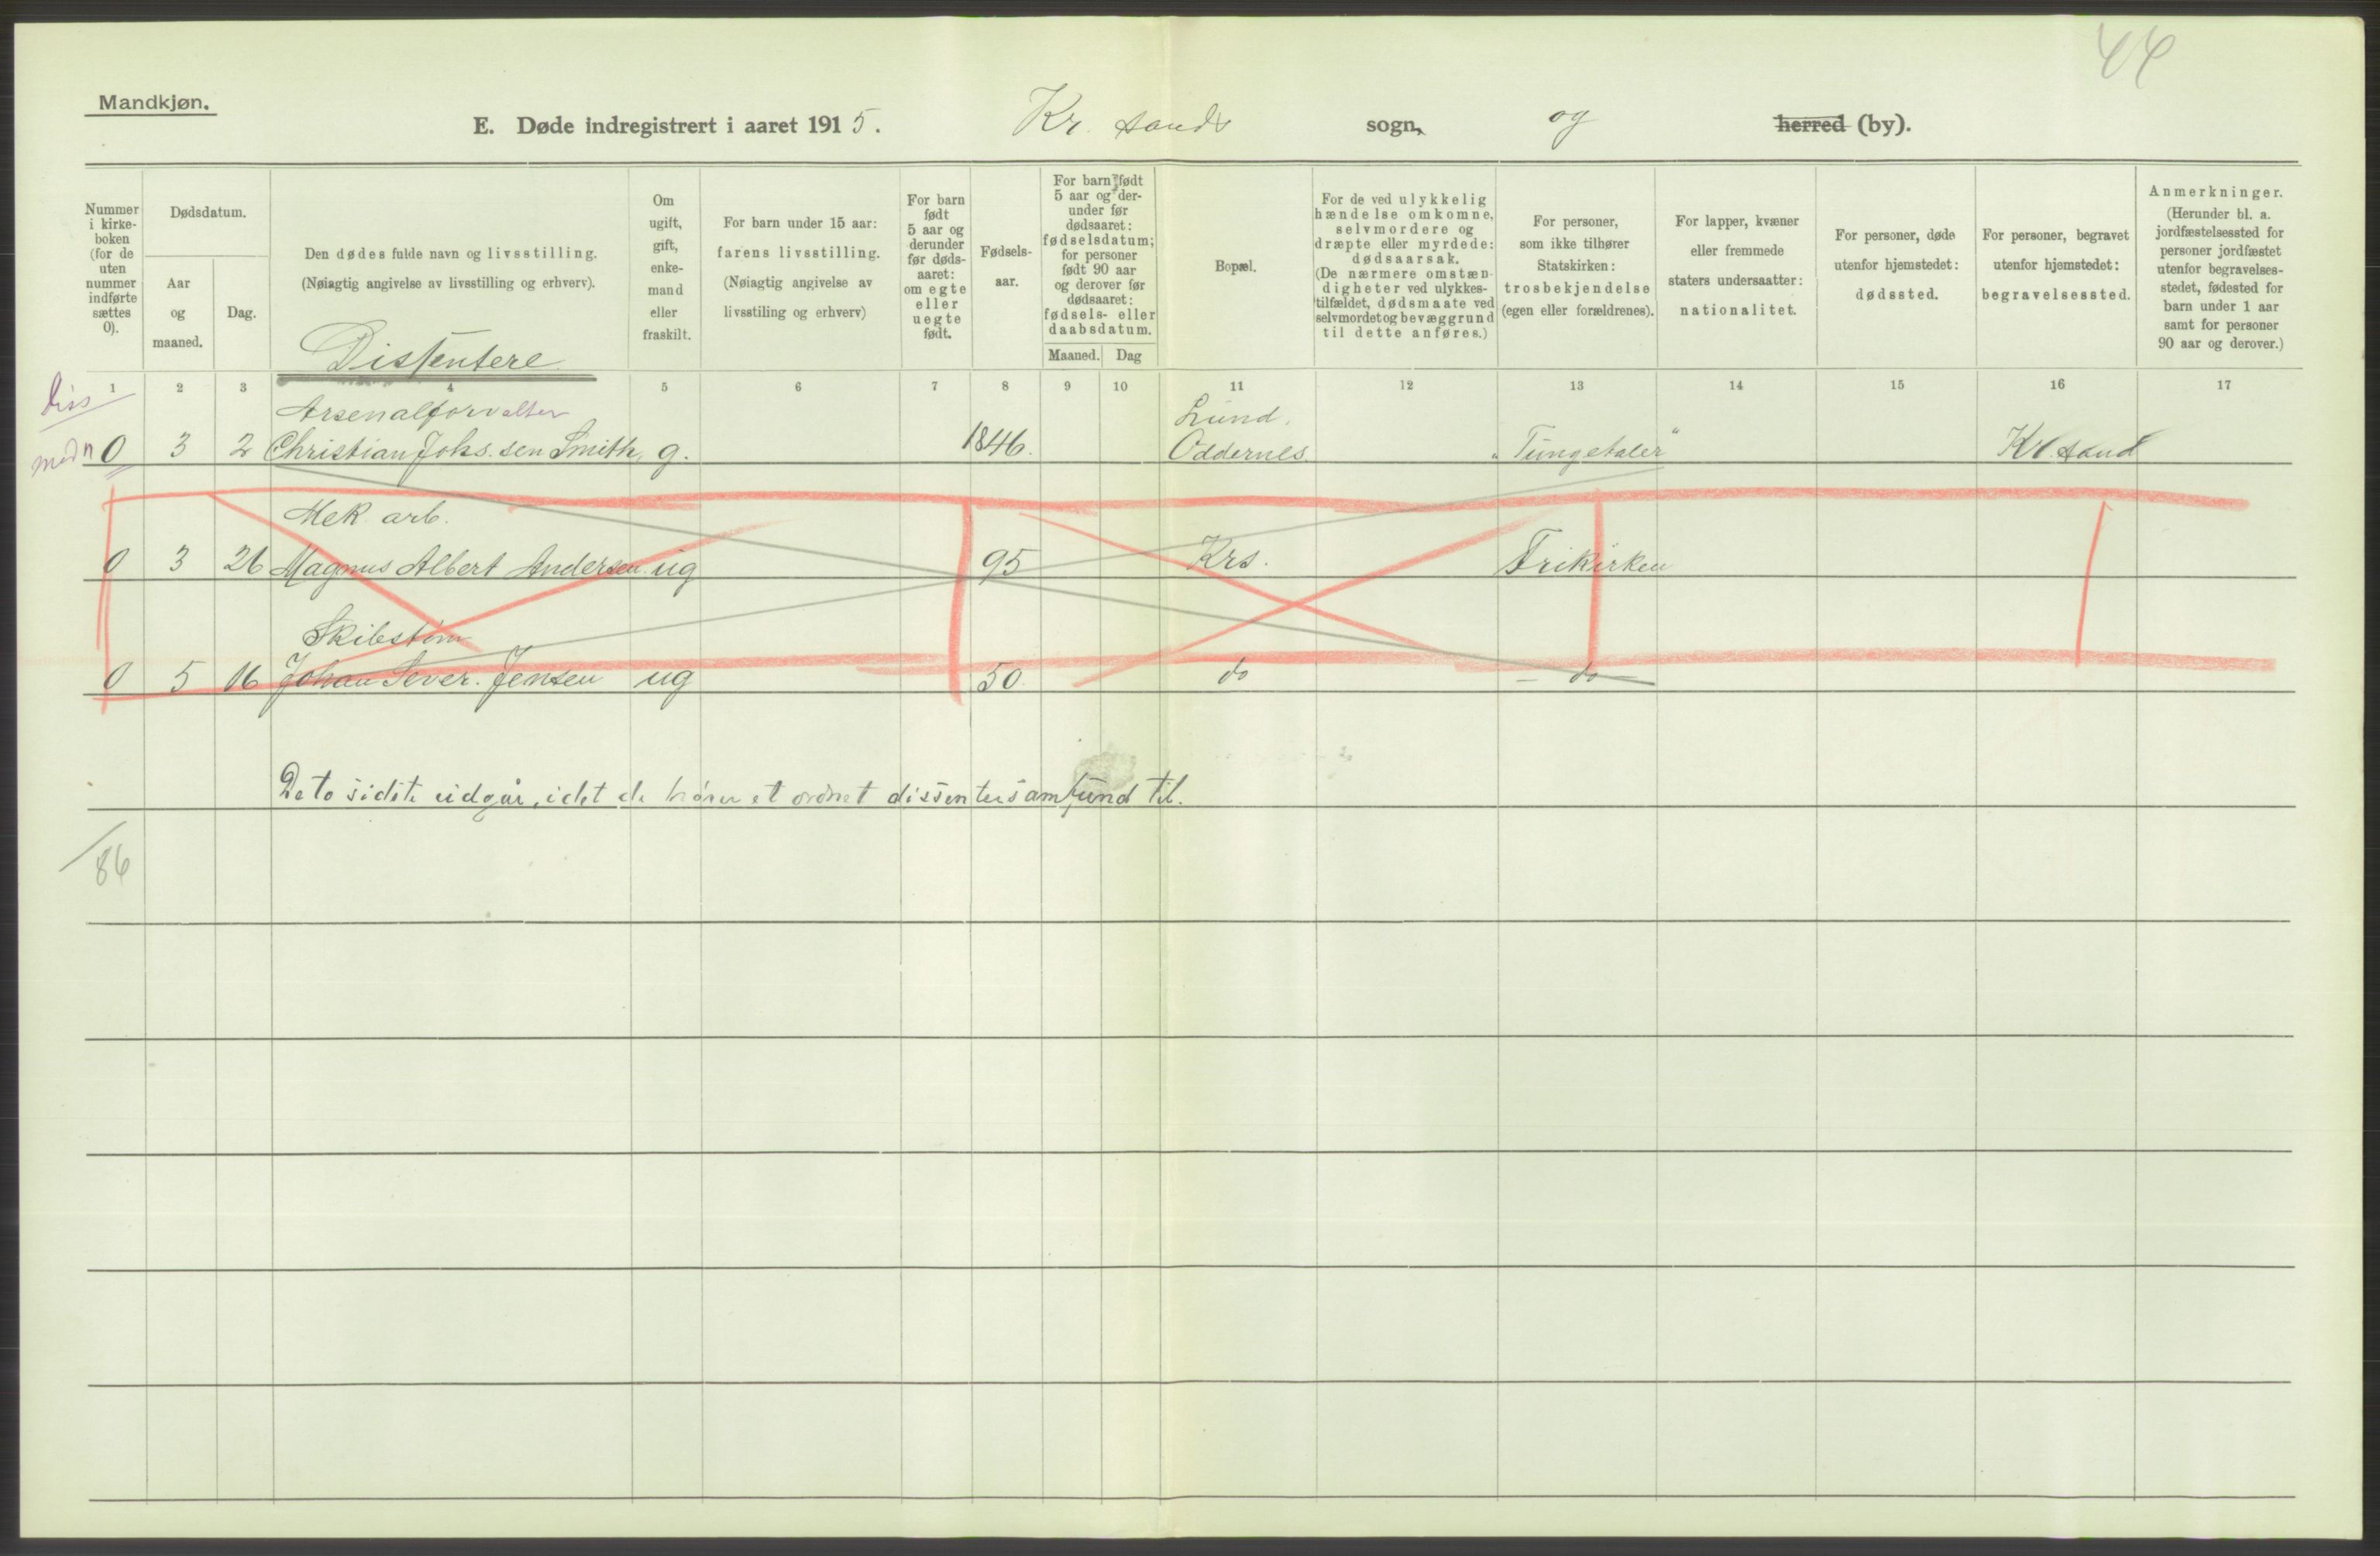 44
Mandkjøn.
E. Døde indregistrert i aaret 1915. Kr. sands sogn, og herred (by).
Nummer i kirke-boken (for de uten nummer indførte sættes 0).
Dødsdatum.
Aar og maaned.
Dag.
Den dødes fulde navn og livsstilling.
(Nøiagtig angivelse av livsstilling og erhverv).
Dissentere
Om ugift, gift, enke-mand eller fraskilt.
For barn under 15 aar:
farens livsstilling.
(Nøiagtig angivelse av
livsstiling og erhverv)
For barn født 5 aar og derunder før døds-aaret: om egte eller uegte født.
Fødsels-aar.
For barn født 5 aar og der-under før dødsaaret: fødselsdatum; for personer født 90 aar og derover før dødsaaret: fødsels- eller daabsdatum.
Maaned. Dag
Bopæl.
For de ved ulykkelig hændelse omkomne, selvmordere og dræpte eller myrdede: dødsaarsak.
(De nærmere omstæn-digheter ved ulykkes-tilfældet, dødsmaate ved selvmordet og bevæggrund til dette anføres.)
For personer, som ikke tilhører Statskirken: trosbekjendelse (egen eller forældrenes).
For lapper, kvæner eller fremmede staters undersaatter: nationalitet.
For personer, døde utenfor hjemstedet: dødssted.
For personer, begravet utenfor hjemstedet: begravelsessted.
Anmerkninger.
(Herunder bl. a. jordfæstelsessted for personer jordfæstet utenfor begravelses-stedet, fødested for barn under 1 aar samt for personer 90 aar og derover.)
1 2 3 4 5 6 7 8 9 10 11 12 13 14 15 16 17
Diss
medn
Arsenalforvalter Lund.
0 3 2 Christian Johs. sen Smith, g. 1846. Oddernes. "Tungetaler" Kr. sand
Mek. arb.
0 3 26 Magnus Albert Andersen ug 95 Krs. Frikirken
Skibstøm
0 5 16 Johan Sever. Jensen ug 50 do — do —
De to sidste udgår, idet de hører et ordnet dissentersamfund til.
/86